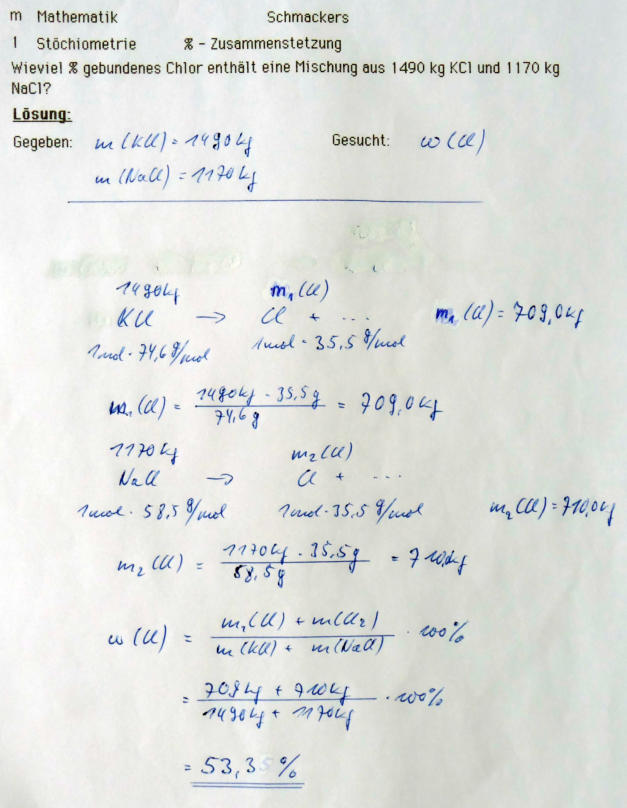 m Mathematik Schmackers
1 Stöchiometrie % - Zusammenstetzung
Wieviel % gebundenes Chlor enthält eine Mischung aus 1490 kg KCl und 1170 kg
NaCl?
Lösung:
Gegeben: m (KCl) = 1490 kg Gesucht: w (Cl)
m (NaCl) = 1170 kg
1490 kg m₁ (Cl)
KCl → Cl + ... m₁ (Cl) = 709,0 kg
1 mol · 74,6 g/mol 1 mol · 35,5 g/mol
m₁ (Cl) = 1490 kg · 35,5 g / 74,6 g = 709,0 kg
1170 kg m₂ (Cl)
NaCl → Cl + ...
1 mol · 58,5 g/mol 1 mol · 35,5 g/mol m₂ (Cl) = 710,0 kg
m₂ (Cl) = 1170 kg · 35,5 g / 58,5 g = 710,0 kg
w (Cl) = m₁ (Cl) + m (Cl₂) / m (KCl) + m (NaCl) · 100 %
= 709 kg + 710 kg / 1490 kg + 1170 kg · 100 %
= 53,35 %